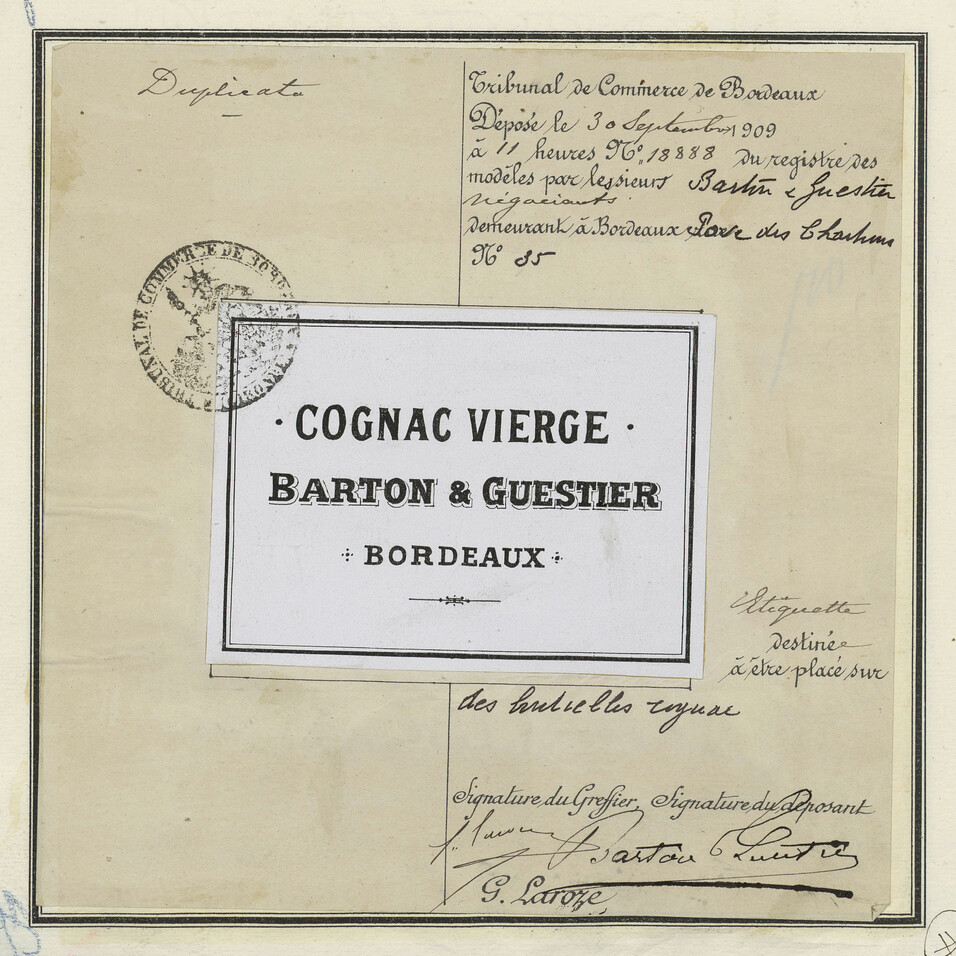 Duplicata
Tribunal de Commerce de Bordeaux
Déposé le 30 Septembre 1909
à 11 heures Nº 18888 du registre des
modèles par les sieurs Barton & Guestier
négociants
demeurant à Bordeaux des Chartrons
Nº 35
TRIBUNAL DE COMMERCE DE BORDEAUX
· COGNAC VIERGE ·
BARTON & GUESTIER
BORDEAUX
Etiquette
destinée
à être placé sur
des bouteilles cognac
Signature du Greffier, Signature du déposant
Barton Guestier
G. Laroze